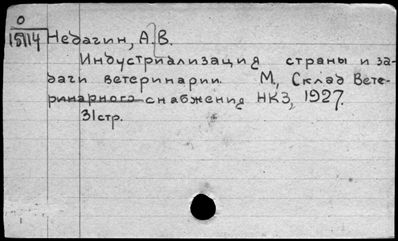 О
15114
Недагин, А.В.
Индустриализация страны и за-
дачи ветеринарии. М, Склад Вете-
ринарного снабжения НКЗ, 1927.
31стр.